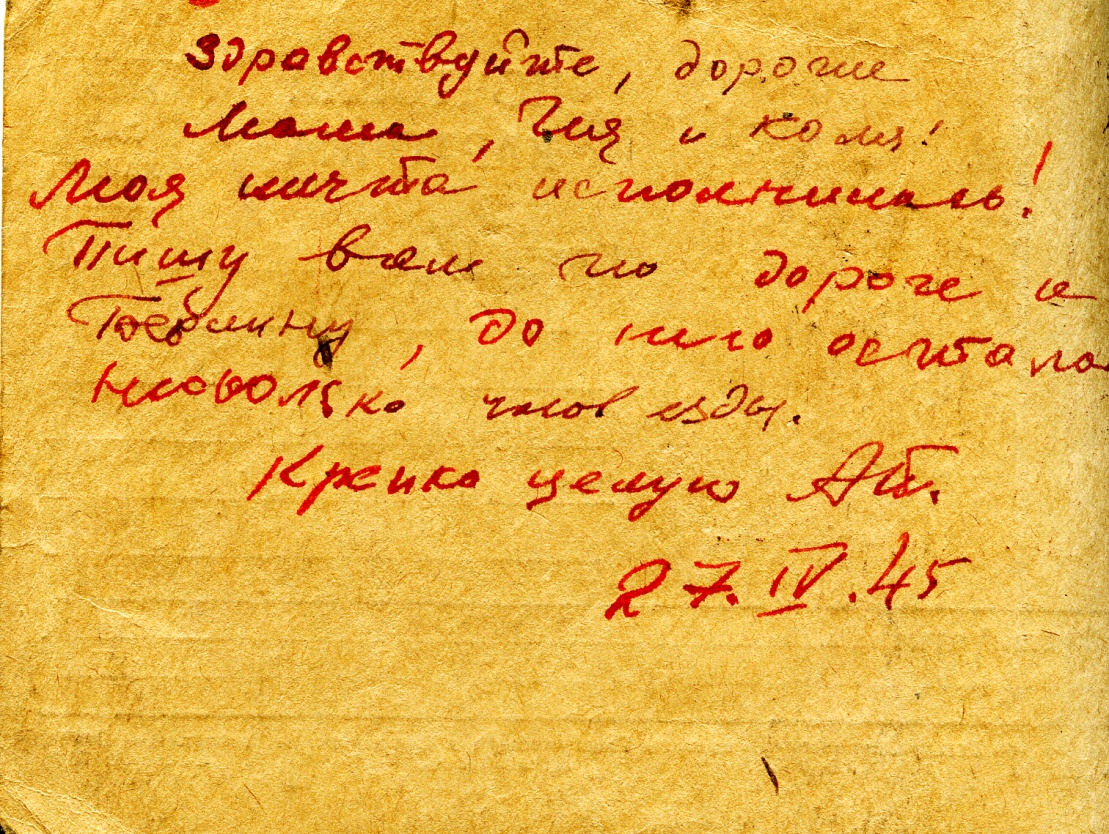 Здравствуйте, дорогие
Мама, Ия и Коля!
Моя мечта исполнилась!
Пишу вам по дороге к
Берлину, до него остало
несколько часов езды.
Крепко целую АБ.
27.IV.45